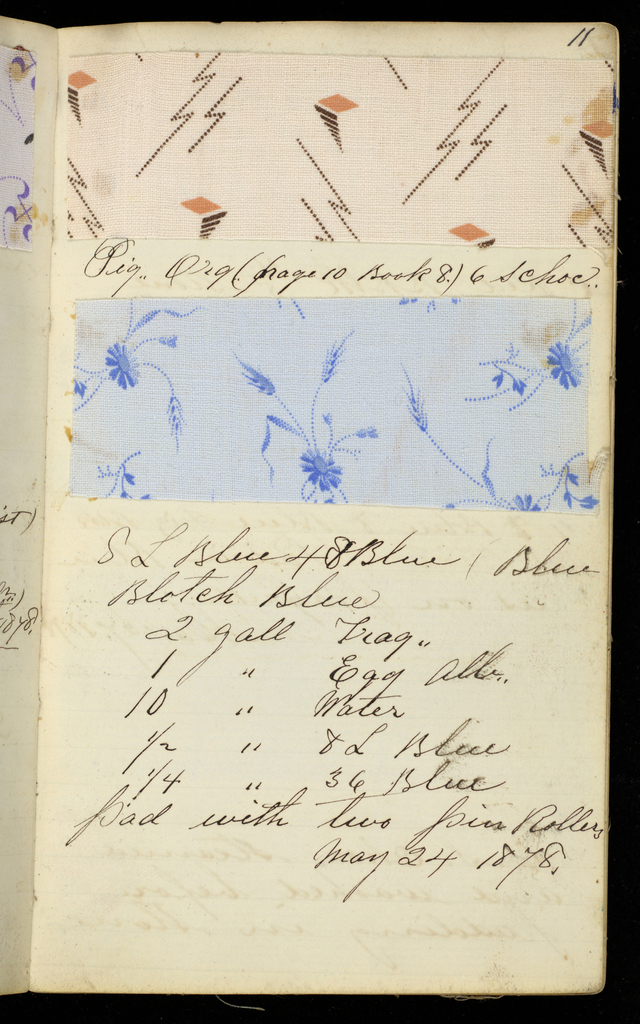 11
Pig,, Org (page 10 Book 8.) 6 Schoc..
8 L Blue 48 Blue ( Blue
Blotch Blue
2 gall Trag,,
1 " Egg Alb,.
10 " Water
1/2 " 8 L Blue
1/4 " 36 Blue
pad with two pin Rollers
May 24 1878.
1878.